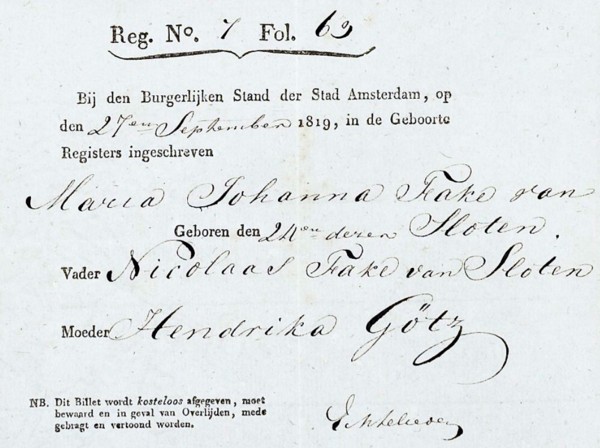 Reg. No. 7 Fol. 69
Bij den Burgerlijken Stand der Stad Amsterdam, op
den 27en September 1819, in de Geboorte
Registers ingeschreven
Maria Johanna Fake van
Geboren den 24en dezer Sloten.
Vader Nicolaas Fake van Sloten
Moeder Hendrika Götz
NB. Dit Billet wordt kosteloos afgegeven, moet
bewaard en in geval van Overlijden, mede
gebragt en vertoond worden.